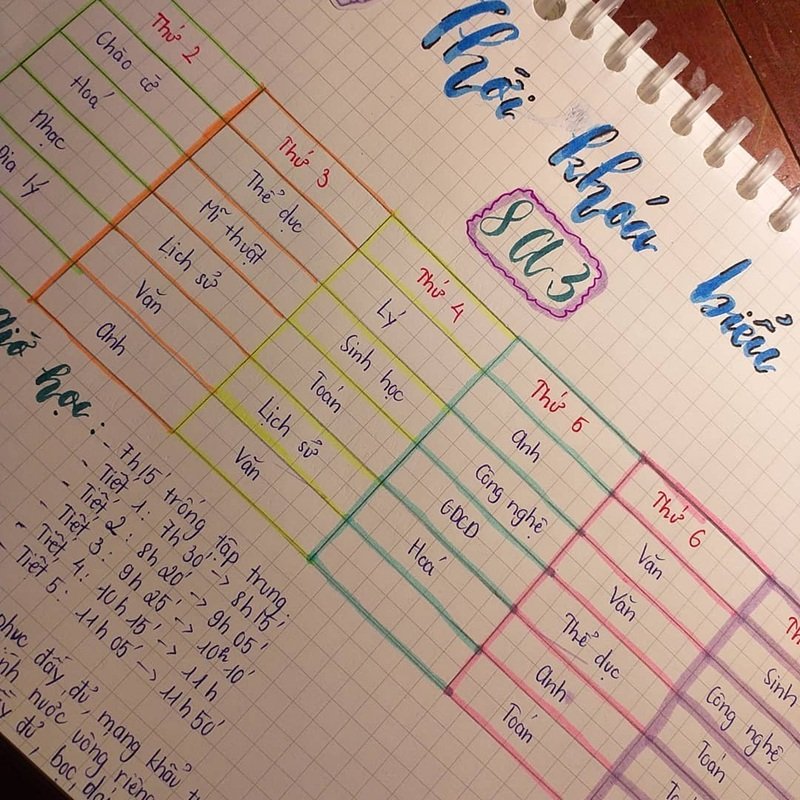 Thời khoá biểu
8A3
Thứ 2
Chào cờ
Hoá
Nhạc
Địa lý
Thứ 3
Thể dục
Mĩ thuật
Lịch sử
Văn
Anh
Thứ 4
Lý
Sinh học
Toán
Lịch sử
Văn
Thứ 5
Anh
Công nghệ
GDCD
Hoá
Thứ 6
Văn
Văn
Thể dục
Anh
Toán
Sinh
Công nghệ
Toán
Giờ học:
- 7h15 trống tập trung
- Tiết 1: 7h30' -> 8h15'
- Tiết 2: 8h20' -> 9h05'
- Tiết 3: 9h25' -> 10h10'
- Tiết 4: 10h15' -> 11h
- Tiết 5: 11h05' -> 11h50'
phục đầy đủ, mang khẩu
nước uống riêng
đủ, bọc